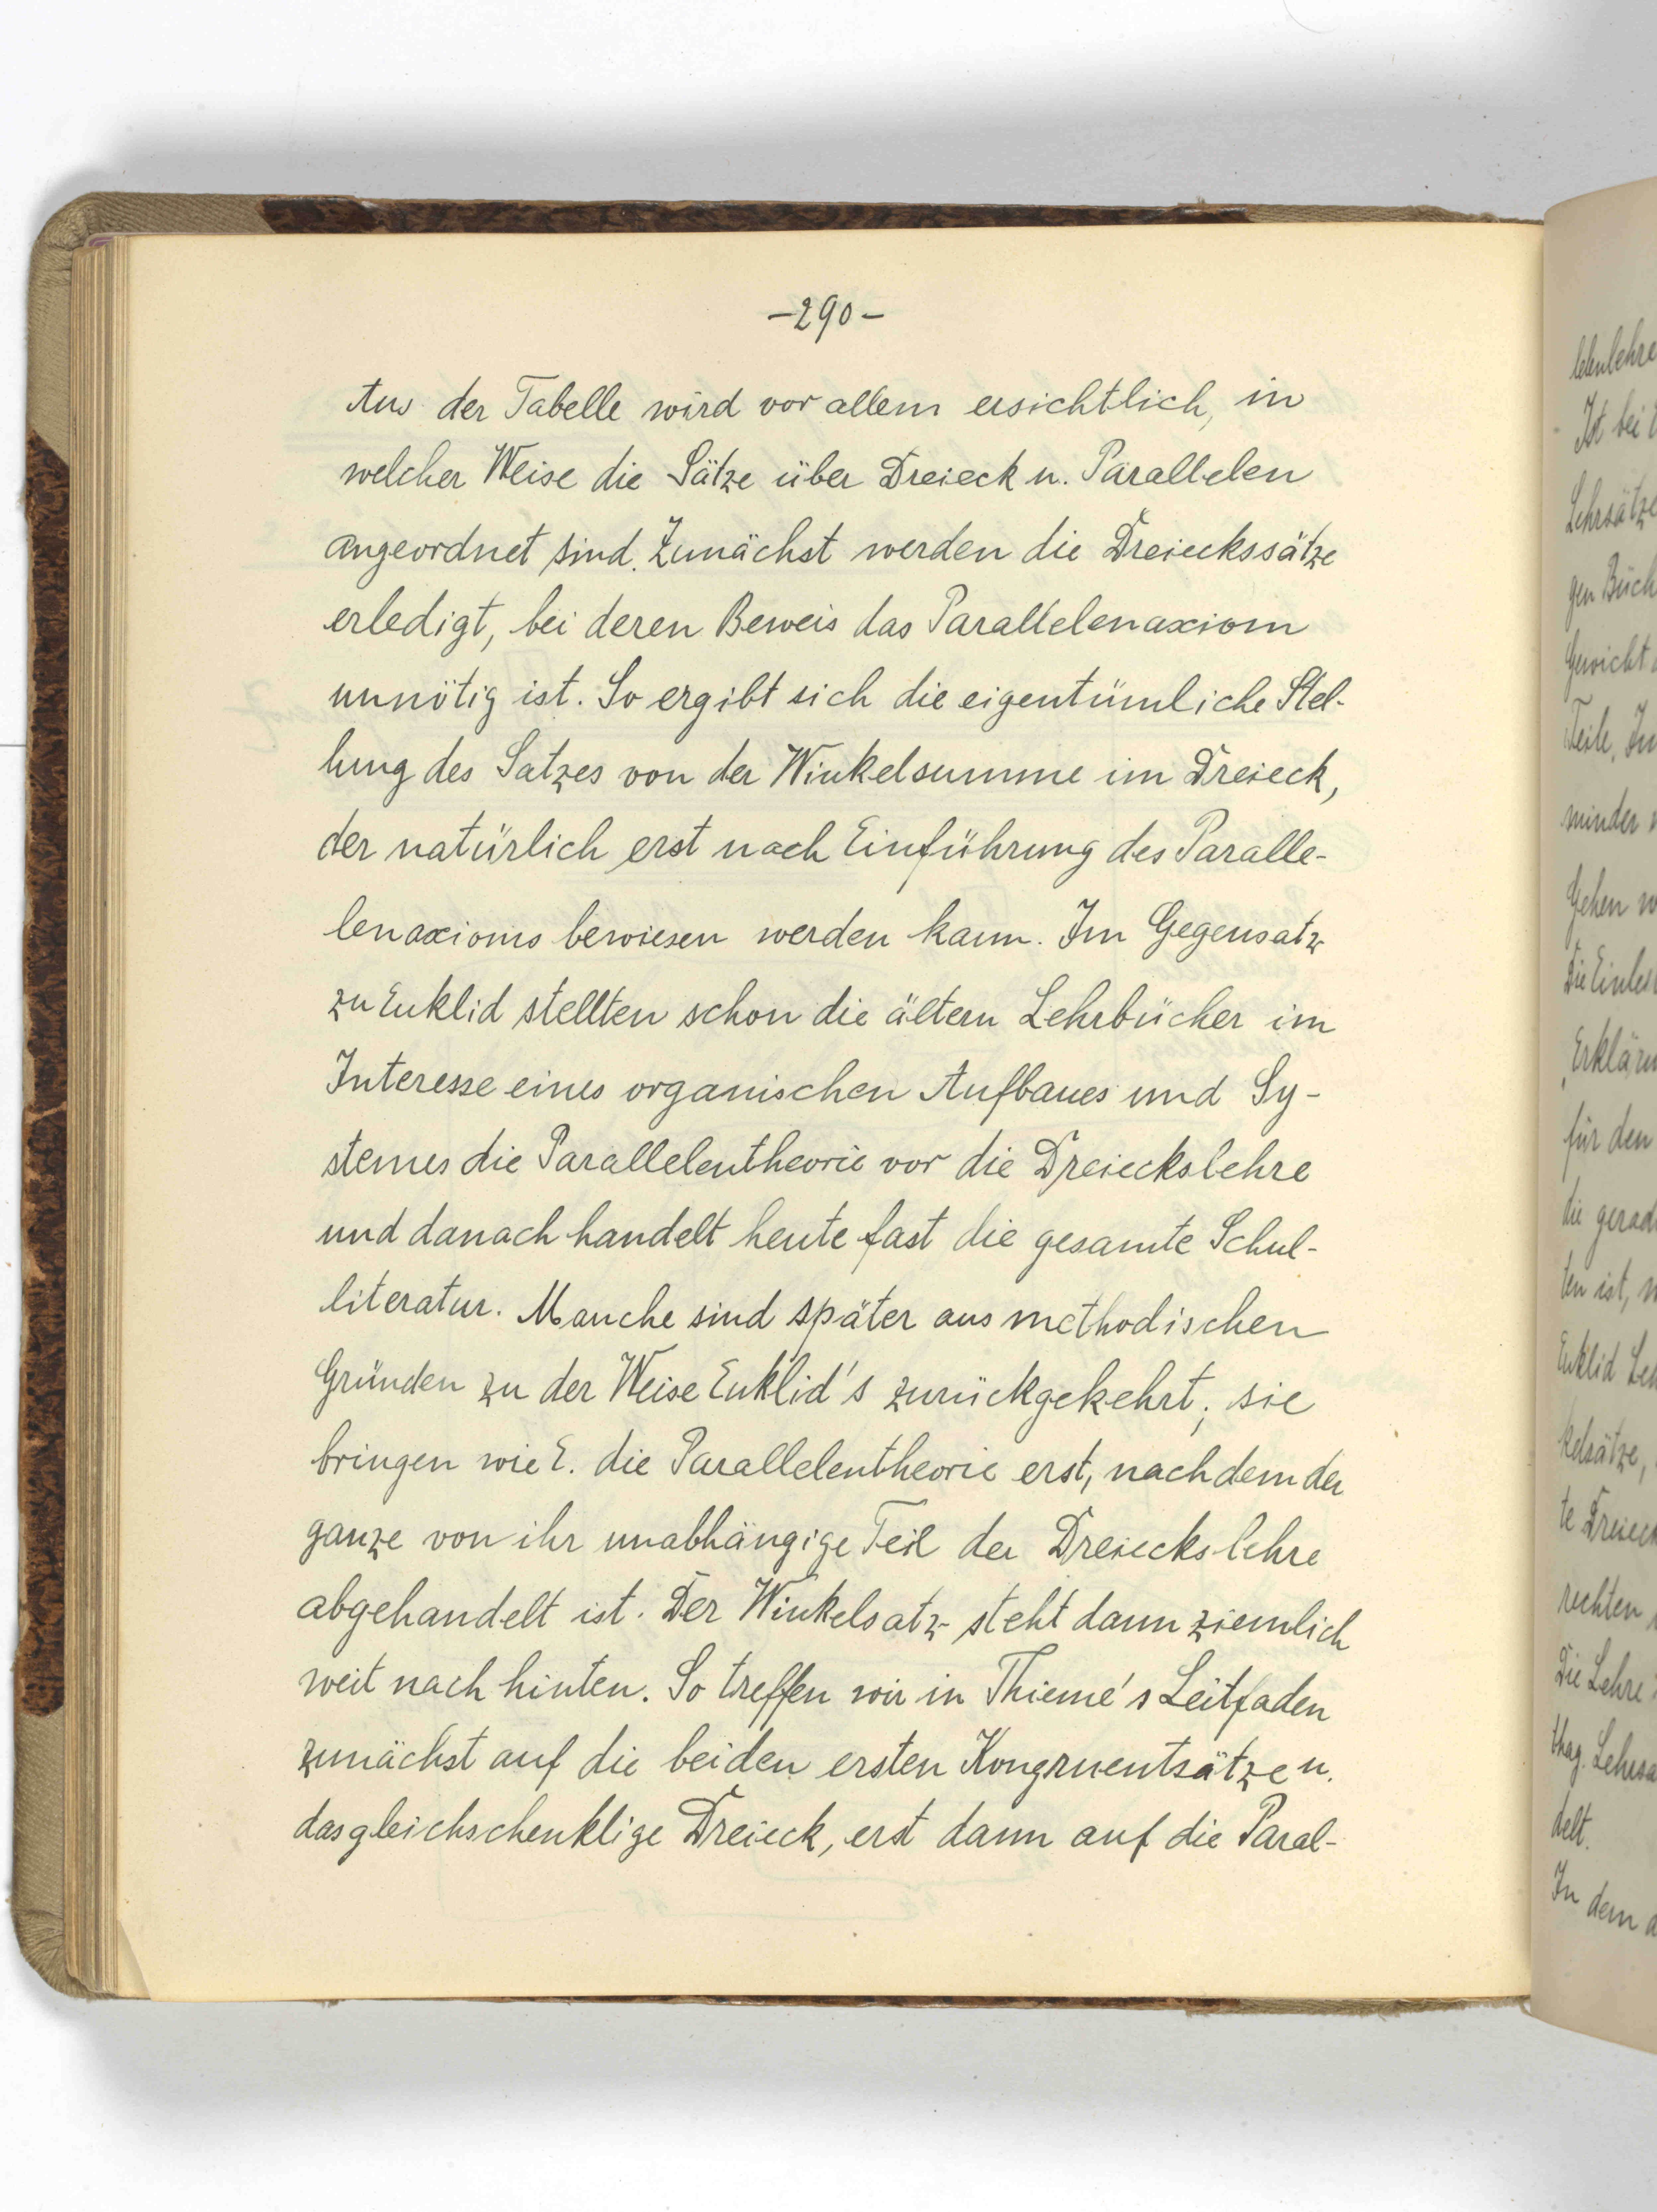 -290-
Aus der Tabelle wird vor allem ersichtlich, in
welcher Weise die Sätze über Dreieck u. Parallelen
angeordnet sind. Zunächst werden die Dreieckssätze
erledigt, bei deren Beweis das Parallelenaxiom
unnötig ist. So ergibt sich die eigentümliche Stel-
lung des Satzes von der Winkelsumme im Dreieck,
der natürlich erst nach Einführung des Paralle-
lenaxioms bewiesen werden kann. Im Gegensatz
zu Euklid stellten schon die ältern Lehrbücher im
Interesse eines organischen Aufbaues und Sy-
stemes die Parallelentheorie vor die Dreieckslehre
und danach handelt heute fast die gesamte Schul-
literatur. Manche sind später aus methodischen
Gründen zu der Weise Euklid's zurückgekehrt; sie
bringen wie E. die Parallelentheorie erst, nachdem der
ganze von ihr unabhängige Teil der Dreieckslehre
abgehandelt ist. Der Winkelsatz steht dann ziemlich
weit nach hinten. So treffen wir in Thieme's Leitfaden
zunächst auf die beiden ersten Kongruentsätze u.
das gleichschenklige Dreieck, erst dann auf die Paral-
lelenlehre
Ist bei
Lehrsätze
gen Büch
Gewicht
Teile. In
minder
Gehen
Die Einlei
Erkläru
für den
die gerad
ten ist,
Euklid Leh
kelsätze,
te Dreieck
rechten
Die Lehre
thag. Lehrsa
delt.
In dem